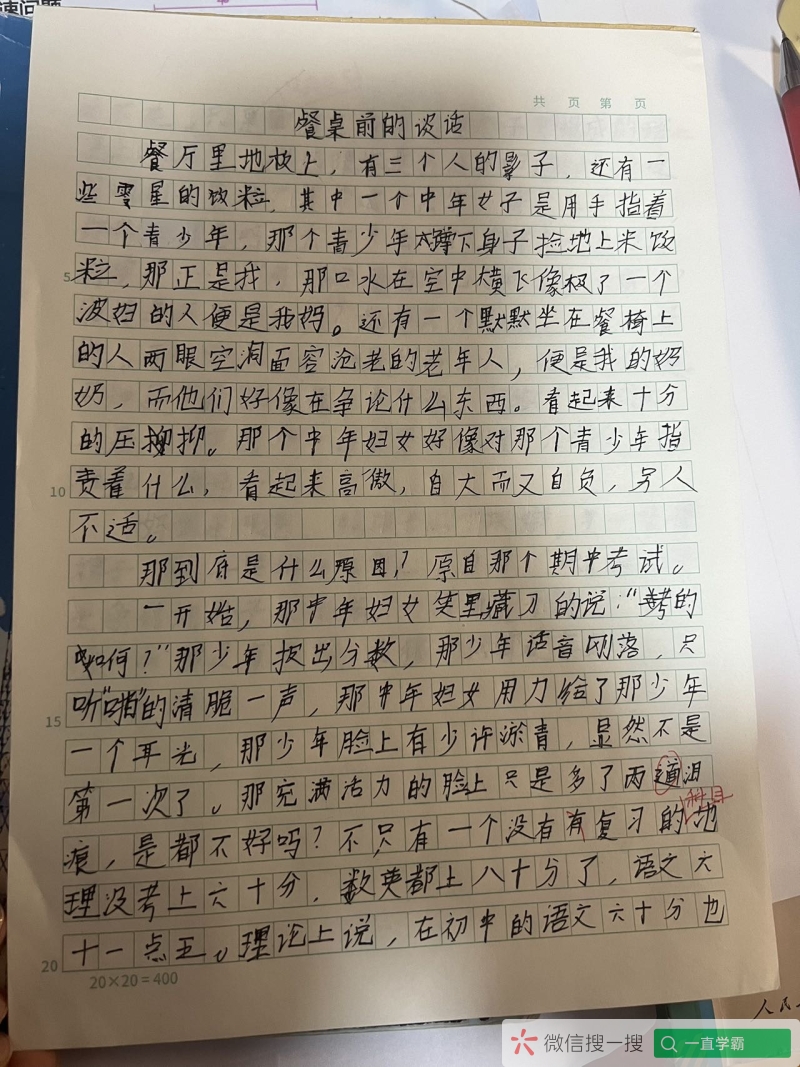 速问题
共 页 第 页
餐桌前的谈话
餐厅里地板上，有三个人的影子，还有一
些零星的饭粒，其中一个中年女子是用手指着
一个青少年，那个青少年蹲下身子捡地上米饭
5
粒，那正是我，那口水在空中横飞像极了一个
泼妇的人便是我妈。还有一个默默坐在餐椅上
的人两眼空洞面容沧老的老年人，便是我的奶
奶，而他们好像在争论什么东西。看起来十分
的压抑。那个中年妇女好像对那个青少年指
10
责着什么，看起来高傲，自大而又自负，另人
不适。
那到底是什么原因？原自那个期中考试。
一开始，那中年妇女笑里藏刀的说："考的
如何？"那少年报出分数，那少年话音刚落，只
15
听"啪"的清脆一声，那中年妇女用力给了那少年
一个耳光，那少年脸上有少许淤青，显然不是
第一次了。那充满活力的脸上只是多了两道泪
科目
痕，是都不好吗？不只有一个没有有复习的地
理没考上六十分，数英都上八十分了，语文六
20
十一点五。理论上说，在初中的语文六十分也
20×20=400
人民
微信搜一搜
一直学霸